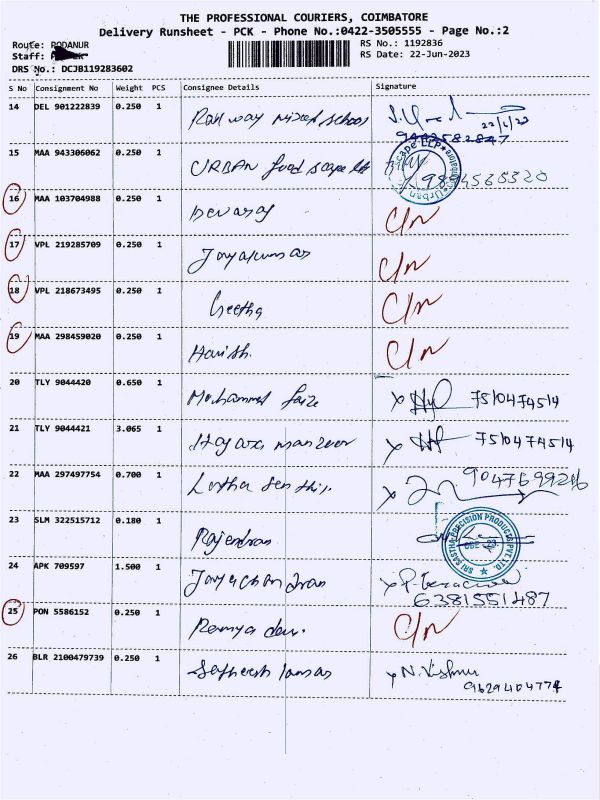 THE PROFESSIONAL COURIERS, COIMBATORE
Delivery Runsheet - PCK - Phone No.:0422-3505555 - Page No.:2
Route: PODANUR
RS No.: 1192836
Staff:
RS Date: 22-Jun-2023
DRS No.: DCJB119283602
S No Consignment No Weight PCS Consignee Details Signature
14 DEL 901222839 0.250 1 Railway mixed school
22/6/23
9442582847
15 MAA 943306062 0.250 1 URBAN food scape
9894565320
16 MAA 103704988 0.250 1 Devaraj C/n
17 VPL 219285709 0.250 1 Jayakumar C/n
18 VPL 218673495 0.250 1 Geetha C/n
19 MAA 298459020 0.250 1 Harish. C/n
20 TLY 9044420 0.650 1 Mohammed faize x 7510474514
21 TLY 9044421 3.065 1 x 7510474514
22 MAA 297497754 0.700 1 Latha Senthil. x 9047699286
23 SLM 322515712 0.180 1 Rajendran
SRI SASTHA PRECISION PRODUCTS PVT. LTD.
24 APK 709597 1.500 1 Jayachandran x
6381551487
25 PON 5586152 0.250 1 Ramya devi. C/n
26 BLR 2100479739 0.250 1 x N. Vishnu
9629404774